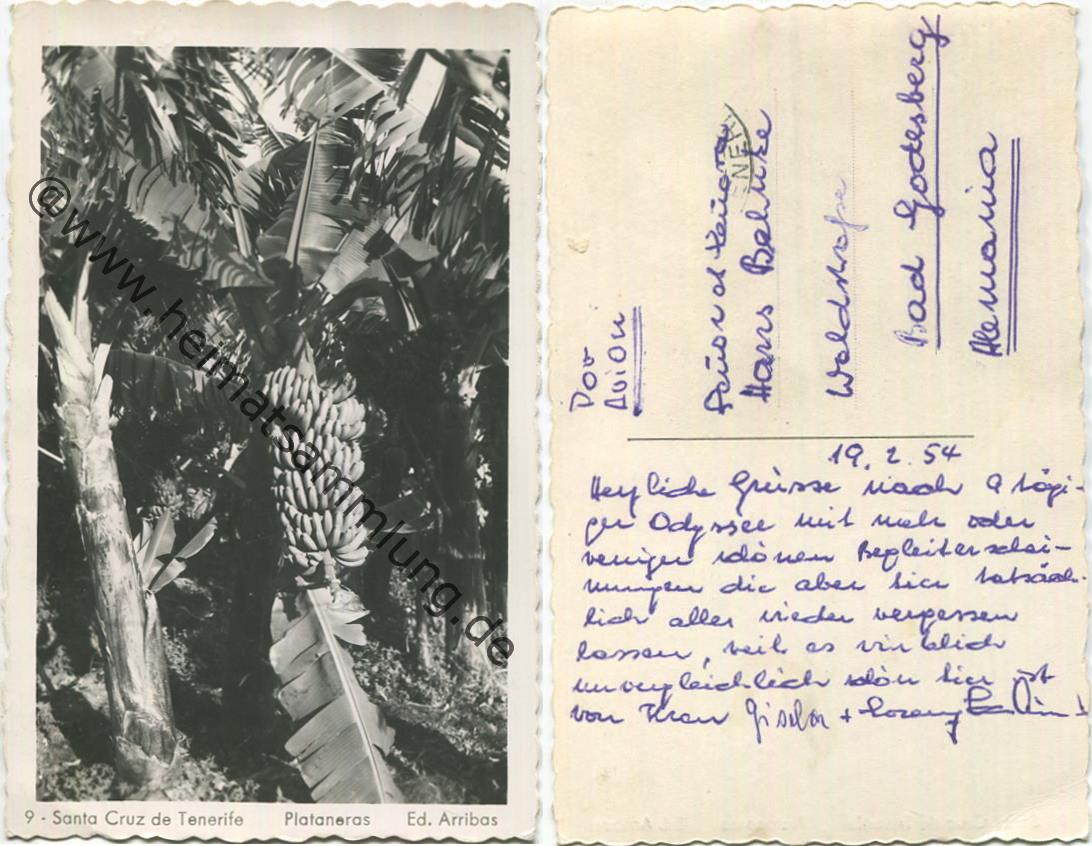 9 - Santa Cruz de Tenerife Plataneras Ed. Arribas
@www.heimatsammlung.de
Por
Avion
Hans Behnke
Waldstraße
Bad Godesberg
Alemania
19. 2. 54
Herzliche Grüsse nach 9 tägi-
ger Odyssee mit mehr oder
weniger schönen Begleiterschei-
nungen die aber hier tatsäch-
lich alles wieder vergessen
lassen, weil es wirklich
unvergleichlich schön hier ist
von Gisela +